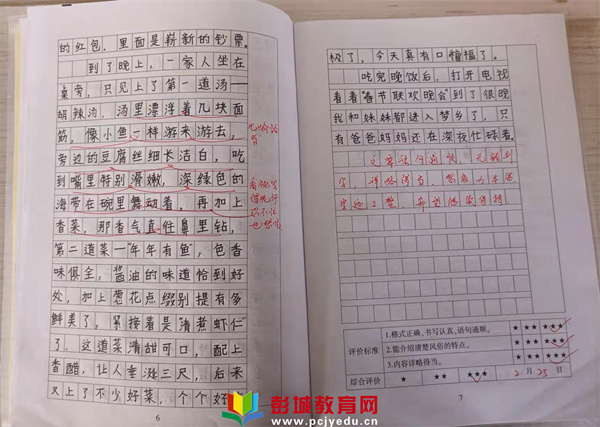 的红包，里面是崭新的钞票。
到了晚上，一家人坐在
桌旁，只见上了第一道汤——
胡辣汤，汤里漂浮着几块面
筋，像小鱼一样游来游去，
旁边的豆腐丝细长洁白，吃
到嘴里特别滑嫩，深绿色的
海带在碗里舞动着，再加上
香菜，那香气直往鼻里钻，
第二道菜"年年有鱼"，色香
味俱全，酱油的味道恰到好
处，加上葱花点缀别提有多
鲜美了，紧接着是"清煮虾仁"
了，这道菜清甜可口，配上
香醋，让人垂涎三尺，后来
又上了不少好菜，个个好
6
极了，今天真有口福福了。
吃完晚饭后，打开电视
看着"春节联欢晚会"到了很晚
我和妹妹都进入梦乡了，只
有爸爸妈妈还在深夜忙碌着。
文章语句通顺，无错别
字，详略得当，
评价标准
1.格式正确，书写认真，语句通顺。
★ ★★ ★★★
2.能介绍清楚风俗的特点。
★ ★★ ★★★
3.内容详略得当。
★ ★★ ★★★
综合评价
★ ★★ ★★★
2月25日
7
彭城教育网
www.pcjyedu.cn